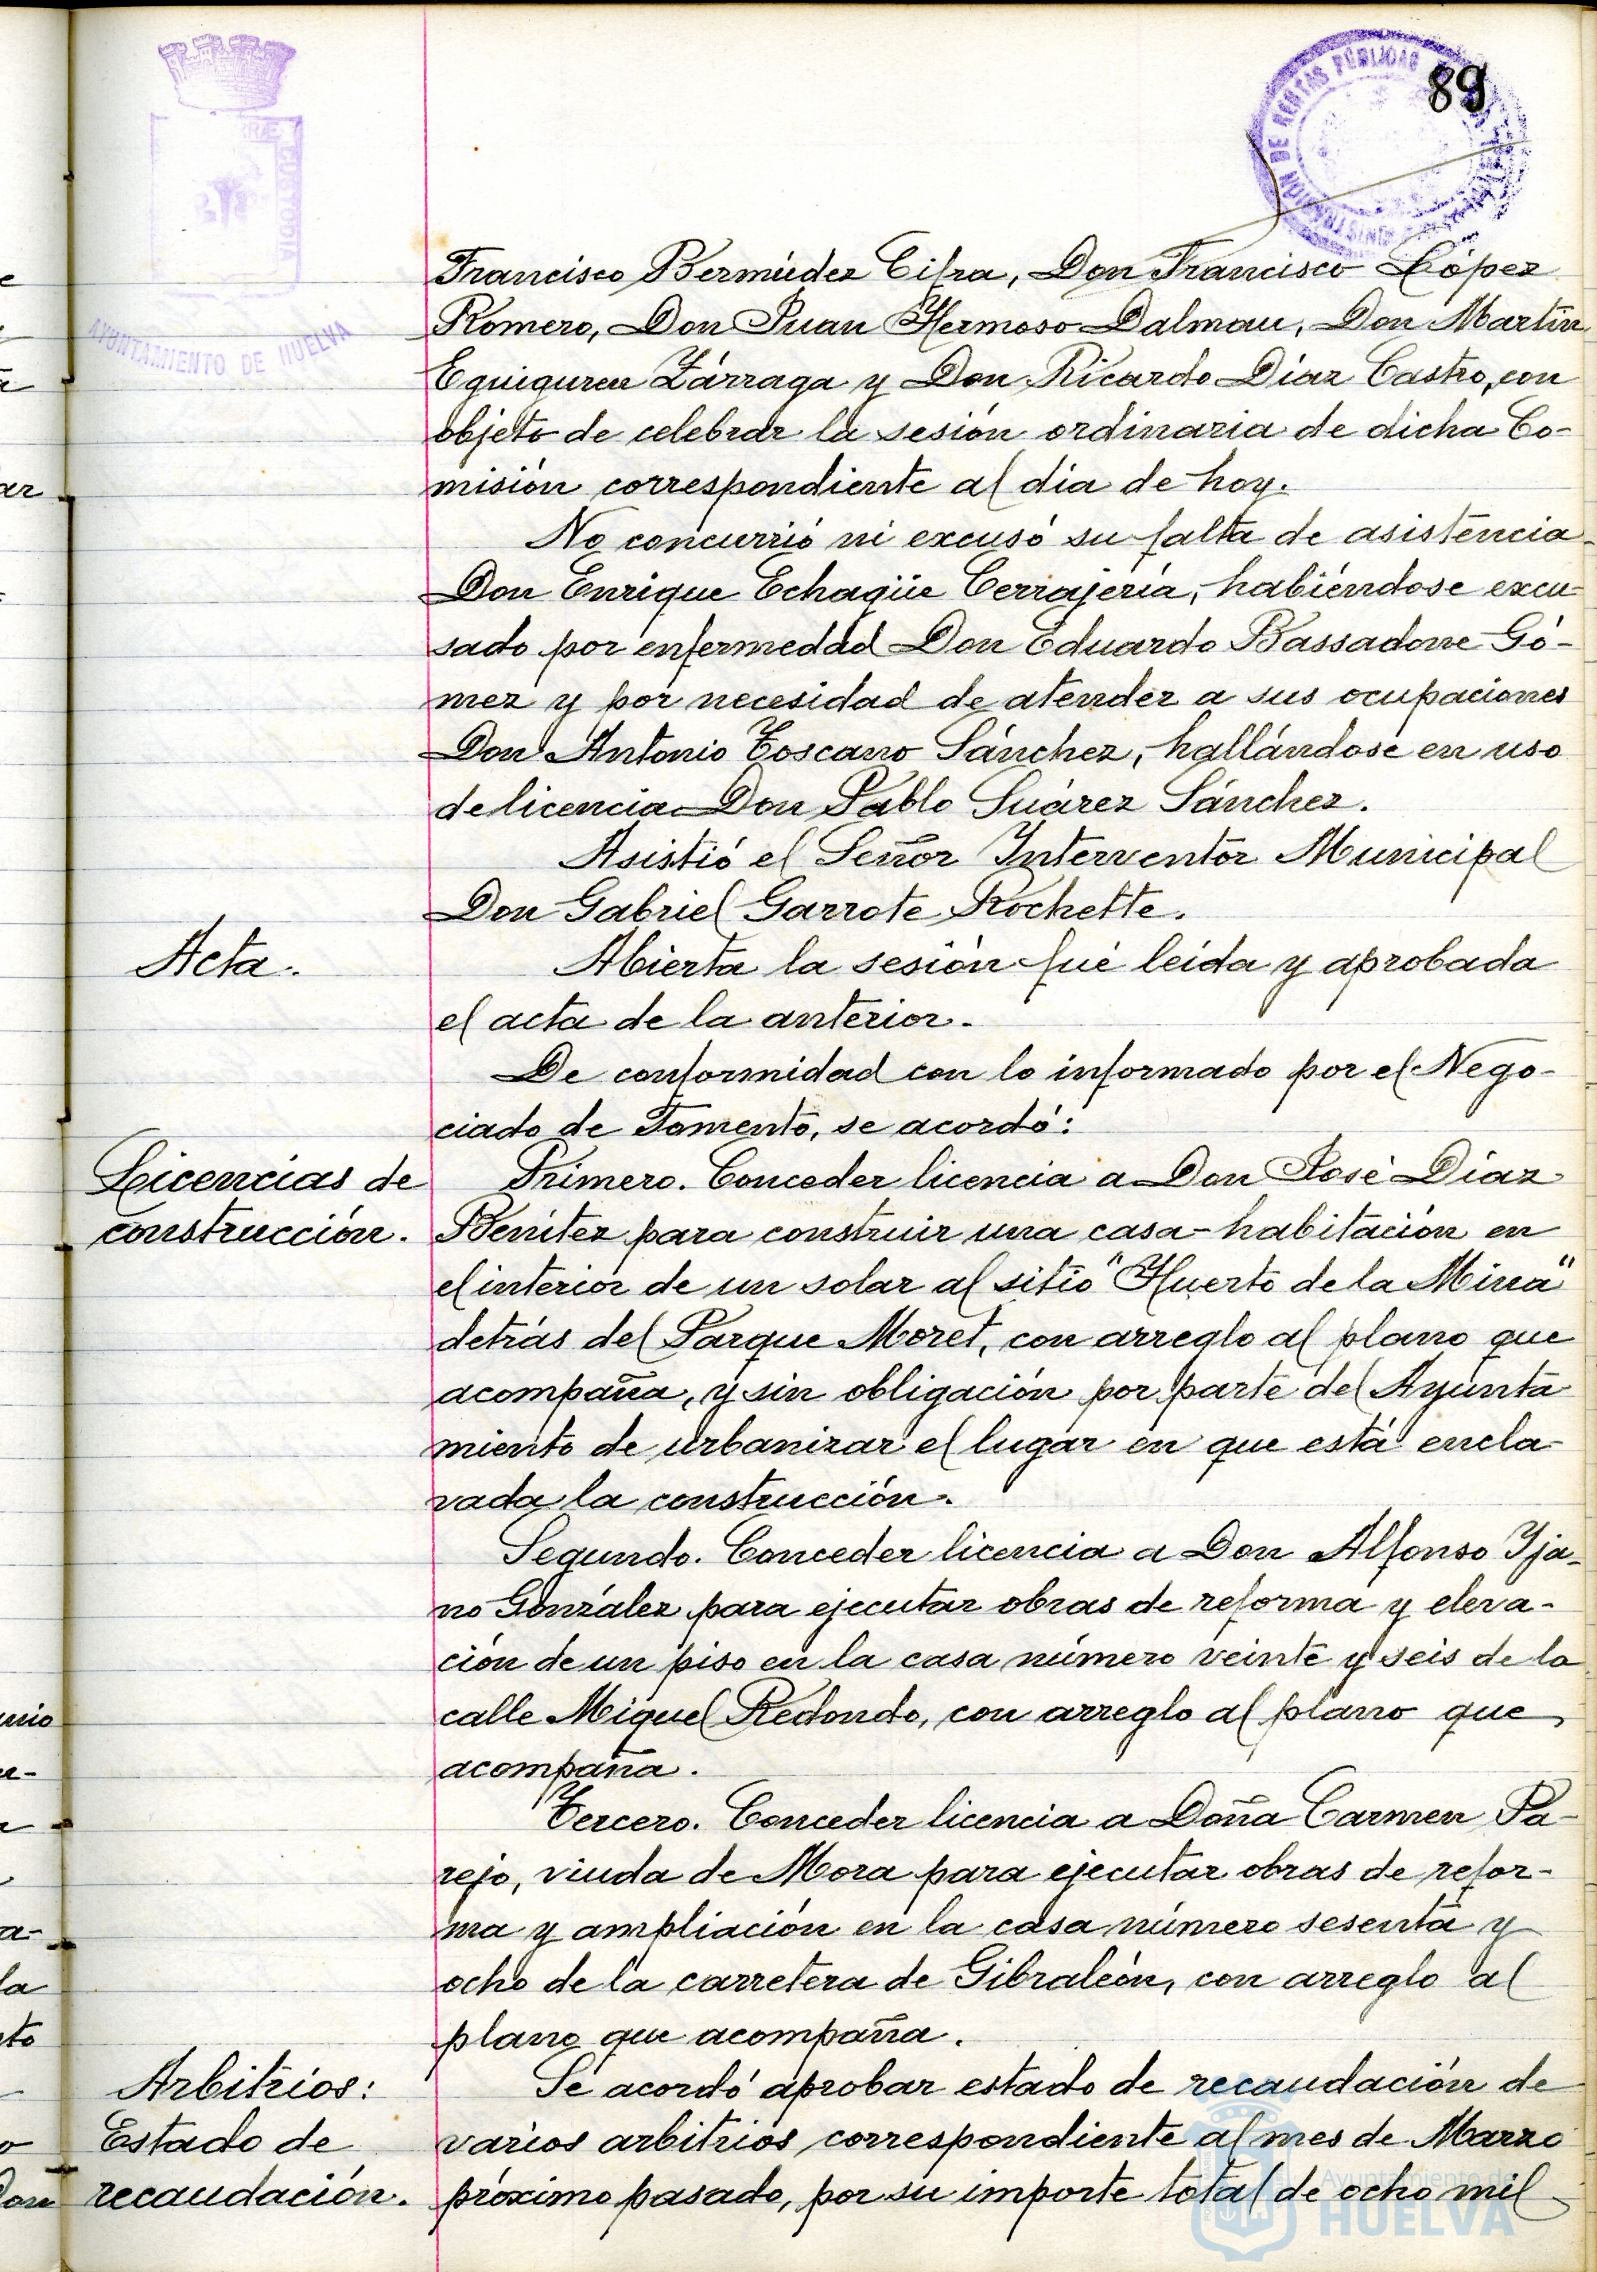 89
ADMINISTRACION DE RENTAS PÚBLICAS
CUSTODIA
AYUNTAMIENTO DE HUELVA
Francisco Bermúdez Cifra, Don Francisco López
Romero, Don Juan Hermoso Dalmau, Don Martín
Eguiguren Zárraga y Don Ricardo Díaz Castro, con
objeto de celebrar la sesión ordinaria de dicha Co-
misión correspondiente al día de hoy.
No concurrió ni excusó su falta de asistencia
Don Enrique Echagüe Cerrajería, habiéndose excu-
sado por enfermedad Don Eduardo Bassadone Gó-
mez y por necesidad de atender a sus ocupaciones
Don Antonio Toscano Sánchez, hallándose en uso
de licencia Don Pablo Suárez Sánchez.
Asistió el Señor Interventor Municipal
Don Gabriel Garrote Rochette.
Acta.
Abierta la sesión fué leída y aprobada
el acta de la anterior.
De conformidad con lo informado por el Nego-
ciado de Fomento, se acordó:
Licencias de
construcción.
Primero. Conceder licencia a Don José Díaz
Benítez para construir una casa-habitación en
el interior de un solar al sitio "Huerto de la Mina"
detrás del Parque Moret, con arreglo al plano que
acompaña, y sin obligación por parte del Ayunta
miento de urbanizar el lugar en que está encla-
vada la construcción.
Segundo. Conceder licencia a Don Alfonso Yja-
no González para ejecutar obras de reforma y eleva-
ción de un piso en la casa número veinte y seis de la
calle Miguel Redondo, con arreglo al plano que
acompaña.
Tercero. Conceder licencia a Doña Carmen Pa-
rejo, viuda de Mora para ejecutar obras de refor-
ma y ampliación en la casa número sesenta y
ocho de la carretera de Gibraleón, con arreglo al
plano que acompaña.
Arbitrios:
Estado de
recaudación.
Se acordó aprobar estado de recaudación de
varios arbitrios correspondiente al mes de Marzo
próximo pasado, por su importe total de ocho mil
Ayuntamiento de
HUELVA